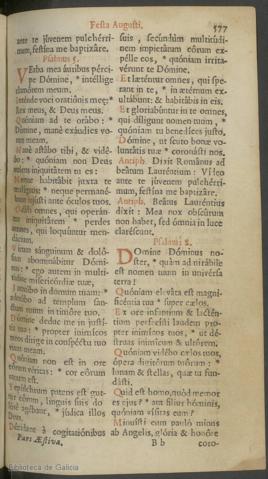 Festa Augusti.
577
ante te júvenem pulchérri-
mum, festína me baptizáre.
Psalmus 5.
VErba mea áuribus pérci-
pe Dómine, * intéllige
clamórem meum.
Inténde voci oratiónis meæ: *
Rex meus, & Deus meus.
Quóniam ad te orábo: *
Dómine, mane exáudies vo-
cem meam.
Mane astábo tibi, & vidé-
bo: * quóniam non Deus
volens iniquitátem tu es:
Neque habitábit juxta te
malígnus: * neque permané-
bunt injústi ante óculos tuos.
Odísti omnes, qui operán-
tur iniquitátem * perdes
omnes, qui loquúntur men-
dácium.
Virum sánguinum & doló-
sum abominábitur Dómi-
nus: * ego autem in multi-
túdine misericórdiæ tuæ,
Introíbo in domum tuam: *
adorábo ad templum san-
ctum tuum in timóre tuo.
Dómine deduc me in justí-
tia tua: * propter inimícos
meos dírige in conspéctu tuo
viam meam.
Quóniam non est in ore
eórum véritas: * cor eórum
vanum est.
Sepúlchrum patens est gut-
tur eórum, linguis suis do-
lósè agébant, * júdica illos
Deus.
Décidant à cogitatiónibus
Pars Æstiva.
suis, secúndùm multitúdi-
nem impietátum eórum ex-
pélle eos, * quóniam irrita-
vérunt te Dómine.
Et læténtur omnes, qui spe-
rant in te, * in ætérnum ex-
ultábunt: & habitábis in eis.
Et gloriabúntur in te omnes,
qui díligunt nomen tuum, *
quóniam tu benedíces justo.
Dómine, ut scuto bonæ vo-
luntátis tuæ * coronásti nos.
Antiph. Dixit Románus ad
beátum Lauréntium: Vídeo
ante te júvenem pulchérri-
mum, festína me baptizáre.
Antiph. Beátus Lauréntius
dixit: Mea nox obscúrum
non habet, sed ómnia in luce
claréscunt.
Psalmus 8.
DOmine Dóminus no-
ster, * quàm admirábile
est nomen tuum in univérsa
terra!
Quóniam eleváta est magni-
ficéntia tua * super cælos.
Ex ore infántium & lactén-
tium perfecísti laudem pro-
pter inimícos tuos, * ut dé-
struas inimícum & ultórem.
Quóniam vidébo cælos tuos,
ópera digitórum tuórum: *
lunam & stellas, quæ tu fun-
dásti.
Quid est homo, quòd memor
es ejus? * aut fílius hóminis,
quóniam vísitas eum?
Minuísti eum paulò minùs
ab Angelis, glória & honóre
B b
coro-
Biblioteca de Galicia